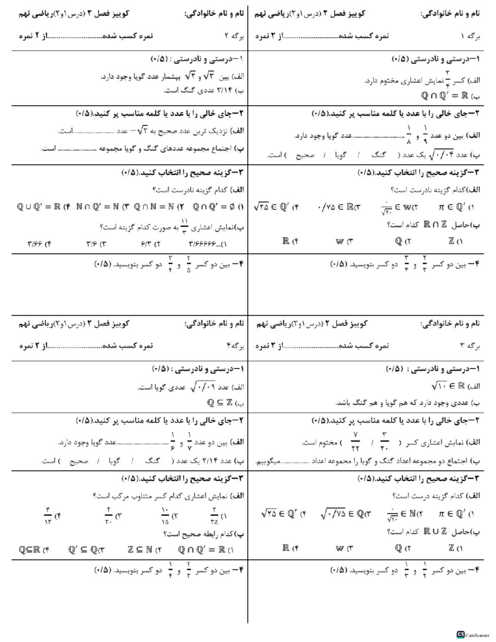 نام و نام خانوادگی: کوییز فصل ۲ (درس۱و۲)ریاضی نهم
برگه ۱ نمره کسب شده..........................از ۲ نمره
۱–درستی و نادرستی (۰/۵)
الف) کسر ۳/۴ نمایش اعشاری مختوم دارد.
ب) ℚ ∩ ℚ′ = ℝ
۲–جای خالی را با عدد یا کلمه مناسب پر کنید.(۰/۵)
الف) بین دو عدد ۱/۹ و ۱/۸ ..........................عدد گویا وجود دارد.
ب) عدد √۰/۰۴ یک عدد ( گنگ / گویا / صحیح ) است.
۳–گزینه صحیح را انتخاب کنید.(۰/۵)
الف) کدام گزینه نادرست است؟
۱) π ∈ ℚ′ ۲) ۰/√۲۰ ∈ 𝕎 ۳) ۰/۷۵ ∈ ℝ ۴) √۲۵ ∈ ℚ′
ب)حاصل ℝ ∩ ℤ کدام است؟
۱) ℤ ۲) ℚ ۳) 𝕎 ۴) ℝ
۴– بین دو کسر ۲/۳ و ۳/۴ دو کسر بنویسید. (۰/۵)
نام و نام خانوادگی: کوییز فصل ۲ (درس۱و۲)ریاضی نهم
برگه ۲ نمره کسب شده..........................از ۲ نمره
۱–درستی و نادرستی : (۰/۵)
الف) بین √۳ و √۲ بیشمار عدد گویا وجود دارد.
ب) ۳/۱۴ عددی گنگ است.
۲–جای خالی را با عدد یا کلمه مناسب پر کنید.(۰/۵)
الف) نزدیک ترین عدد صحیح به √۲- عدد ....................است.
ب) اجتماع مجموعه عددهای گنگ و گویا مجموعه .................... است.
۳–گزینه صحیح را انتخاب کنید.(۰/۵)
الف) کدام گزینه نادرست است؟
۱) ℚ ∩ ℚ′ = ∅ ۲) ℚ ∩ ℕ = ℕ ۳) ℕ ∩ ℚ′ = ℕ ۴) ℚ ∪ ℚ′ = ℝ
ب)نمایش اعشاری ۱۱/۳ به صورت کدام گزینه است؟
۱) ۳/۶۶۶۶۶... ۲) ۶/۳ ۳) ۳/۶ ۴) ۳/۶۶
۴– بین دو کسر ۲/۵ و ۳/۴ دو کسر بنویسید. (۰/۵)
نام و نام خانوادگی: کوییز فصل ۲ (درس۱و۲)ریاضی نهم
برگه ۳ نمره کسب شده..........................از ۲ نمره
۱–درستی و نادرستی : (۰/۵)
الف) √۱۰ ∈ ℝ
ب) عددی وجود دارد که هم گویا و هم گنگ باشد.
۲–جای خالی را با عدد یا کلمه مناسب پر کنید.(۰/۵)
الف) نمایش اعشاری کسر ( ۳/۲۰ / ۷/۲۲ ) مختوم است.
ب) اجتماع دو مجموعه اعداد گنگ و گویا را مجموعه اعداد ................میگوییم.
۳–گزینه صحیح را انتخاب کنید.(۰/۵)
الف) کدام گزینه درست است؟
۱) π ∈ ℚ′ ۲) ۰/√۲۰ ∈ ℕ ۳) √۰/۷۵ ∈ ℚ ۴) √۲۵ ∈ ℚ′
ب)حاصل ℝ ∪ ℤ کدام است؟
۱) ℤ ۲) ℚ ۳) 𝕎 ۴) ℝ
۴– بین دو کسر ۱/۲ و ۱/۳ دو کسر بنویسید. (۰/۵)
نام و نام خانوادگی: کوییز فصل ۲ (درس۱و۲)ریاضی نهم
برگه۴ نمره کسب شده..........................از ۲ نمره
۱–درستی و نادرستی : (۰/۵)
الف) عدد √۰/۰۹ عددی گویا است.
ب) ℚ ⊆ ℤ
۲–جای خالی را با عدد یا کلمه مناسب پر کنید.(۰/۵)
الف) بین دو عدد ۱/۷ و ۱/۶ ..........................عدد گویا وجود دارد.
ب) عدد ۳/۱۴ یک عدد ( گنگ / گویا / صحیح ) است
۳–گزینه صحیح را انتخاب کنید.(۰/۵)
الف) نمایش اعشاری کدام کسر متناوب مرکب است؟
۱) ۲/۳۵ ۲) ۱۰/۱۵ ۳) ۴/۲۰ ۴) ۳/۱۳
ب)کدام رابطه صحیح است؟
۱) ℚ ∩ ℚ′ = ℝ ۲) ℤ ⊆ ℕ ۳) ℚ′ ⊆ ℚ ۴) ℚ⊆ℝ
۴– بین دو کسر ۲/۳ و ۱/۴ دو کسر بنویسید. (۰/۵)
CamScanner